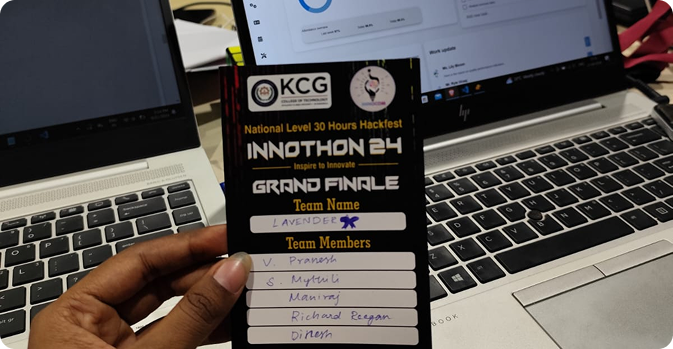 Work update
hp
BOOK
KCG
COLLEGE OF TECHNOLOGY
National Level 30 Hours Hackfest
INNOTHON 24
Inspire to Innovate
GRAND FINALE
Team Name
LAVENDER
Team Members
V. Pranesh
S. Mythili
Maniraj
Richard Reegan
Dinesh